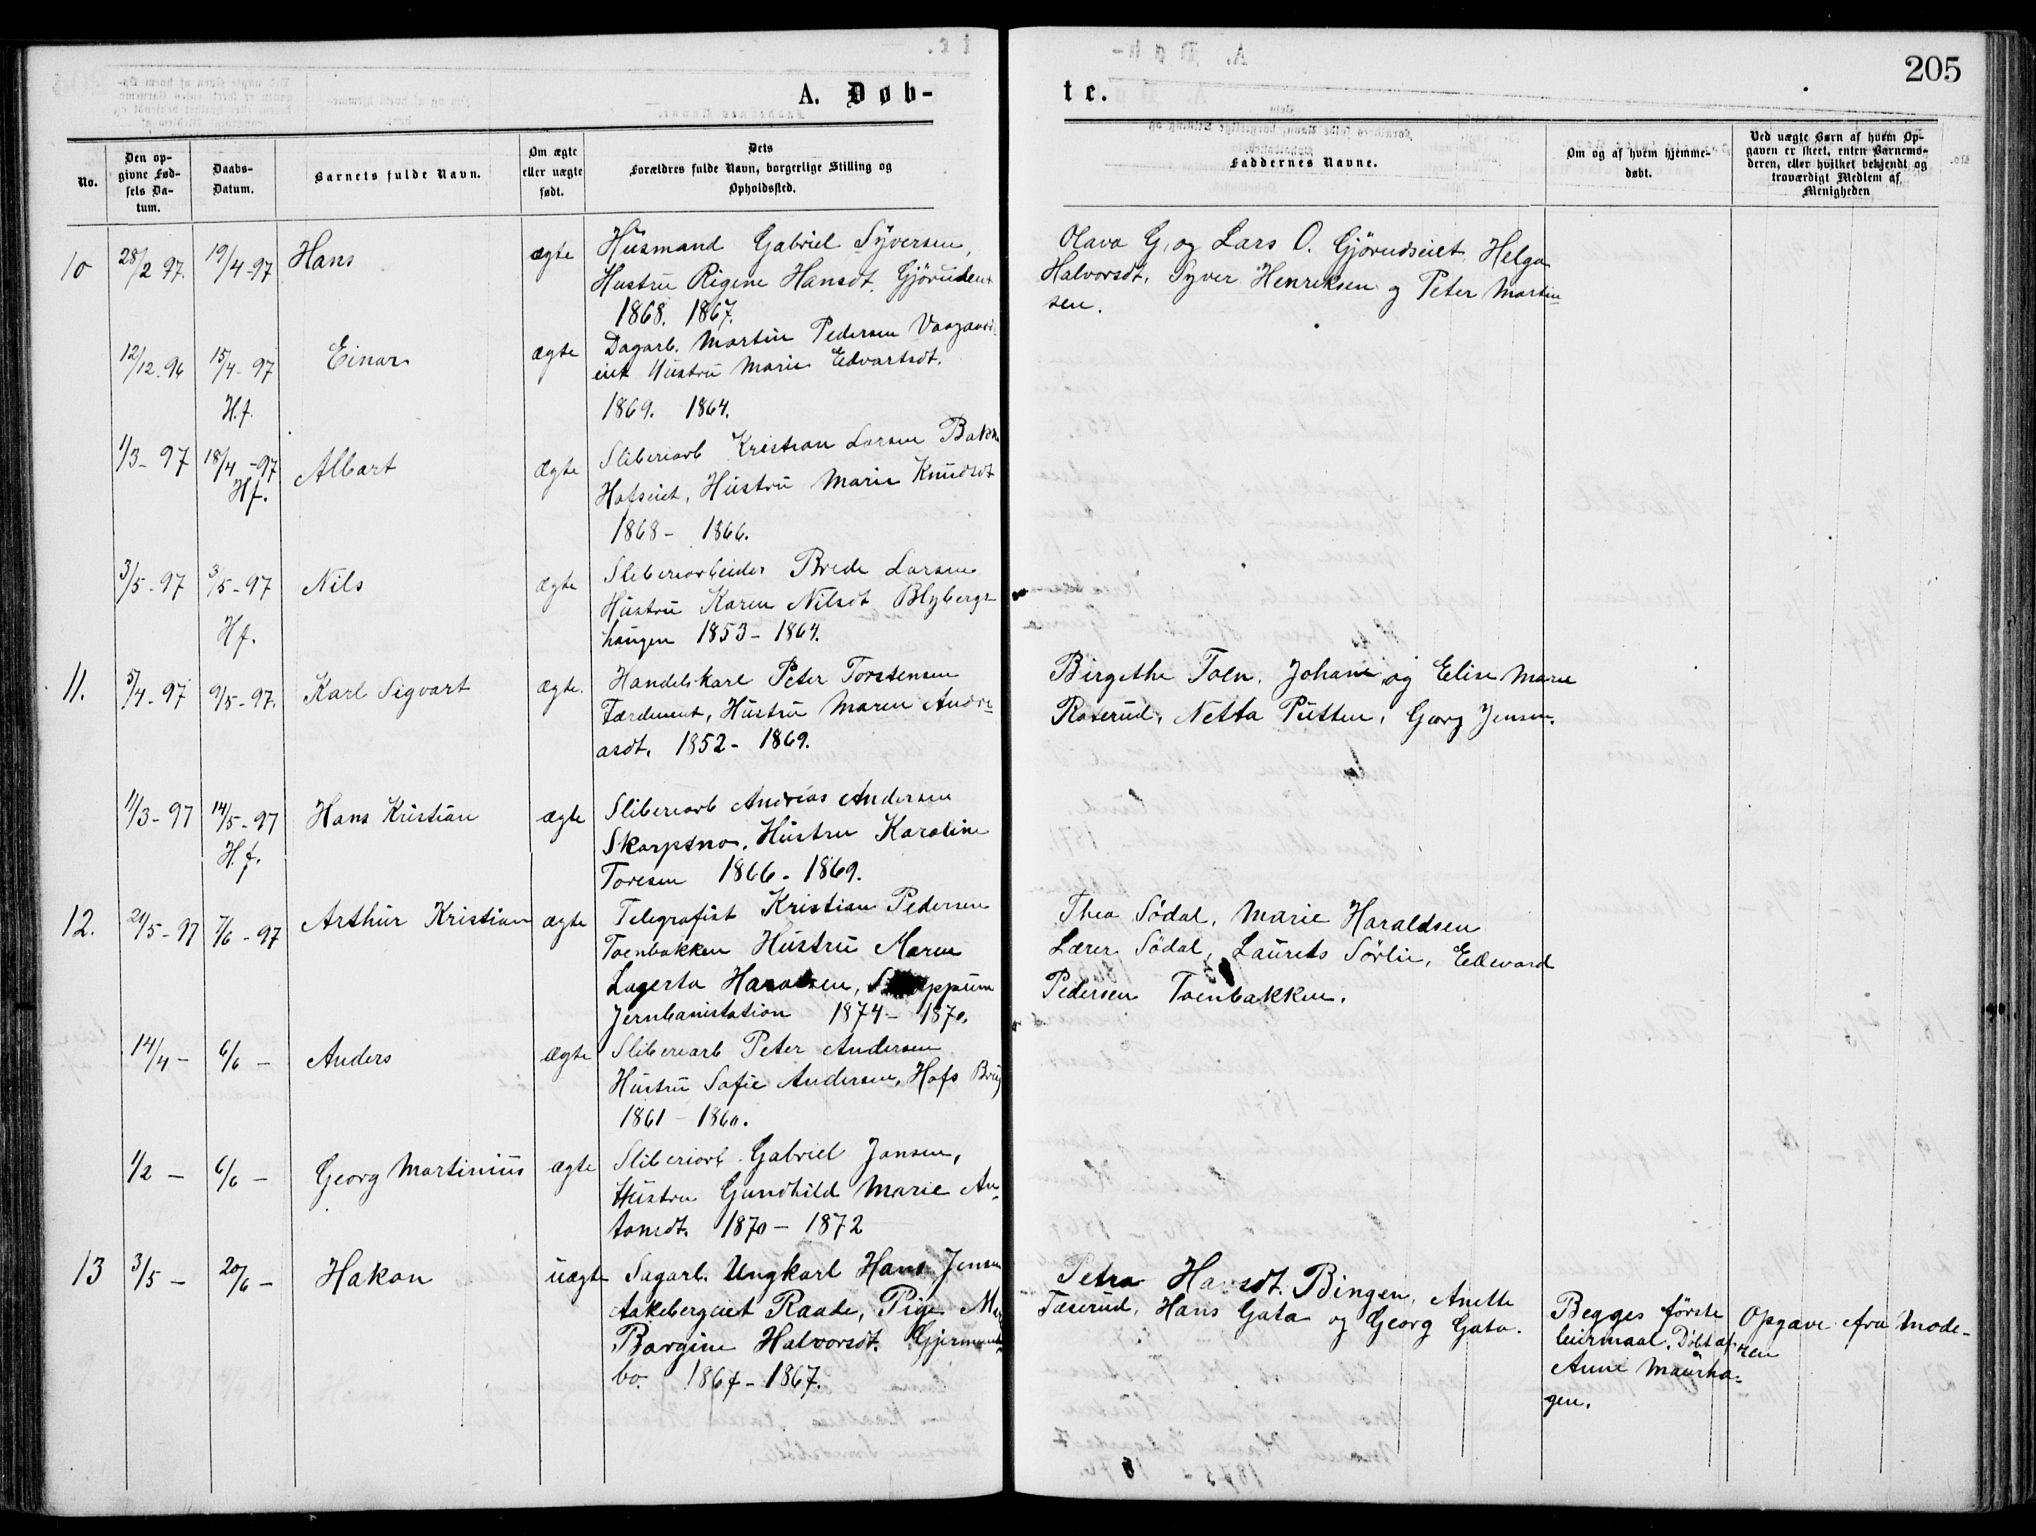 205
A. Døb-
te.
No.
Den op-
givne Fød-
sels Da-
tum.
Daabs-
Datum.
Barnets fulde Navn.
Om ægte
eller uægte
født.
Dets
Forældres fulde Navn, borgerlige Stilling og
Opholdssted.
Faddernes Navne.
Om og af hvem hjemme-
døbt.
Ved uægte Børn af hvem Op-
gaven er skeet, enten Barnemo-
deren, eller hvilket bekjendt og
troværdigt Medlem af
Menigheden
10 28/2 97. 19/4-97 Hans ægte
Husmand Gabriel Syversen,
Hustru Rigine Hansdt. Gjørudent
1868. 1867.
Olava G. og Lars O. Gjørudseiet, Helga
Halvorsdt, Syver Henriksen og Peter Martin
sen.
12/12.96 15/4-97 Einar ægte
H.f.
Dagarb. Martin Pedersen
eiet Hustru Marie Edvartsdt.
1869. 1864.
1/3-97 18/4-97 Albart ægte
H.f.
Sliberiarb Kristian Larsen Bakk
Hofseiet, Hustru Marie Knudsdt
1868- 1866.
3/5-97 3/5-97 Nils ægte
H.f.
Sliberiarbeider Brede Larsen
Hustru Karen Nilsdt Blybergs
haugen 1853- 1864.
11. 5/4-97 9/5-97. Karl Sigvart ægte.
Handelskarl Peter Torstensen
Færdenent, Hustru Maren Andre
asdt. 1852- 1869.
Birgethe Toen, Johane og Elise Marie
Roserud, Netta Putten, Georg Jensen.
11/3-97 14/5-97 Hans Kristian ægte
H.f.
Sliberiarb Andreas Andersen
Skarpsno, Hustru Karoline
Toresen 1866- 1869.
12. 21/5-97 7/6-97 Arthur Kristian ægte
Telegrafist Kristian Pedersen
Toenbakken Hustru Maren
Lagerta Haraldsen,
Jernbanistation 1874- 1870.
Thea Södal, Marie Haraldsen
Lærer Södal, Laurits Sørlie, Edevard
Pedersen Toenbakken.
14/4- 6/6- Anders ægte
Sliberiarb Peter Andersen
Hustru Sofie Andersen, Hofs Brug
1861-1860.
1/2- 6/6- Georg Martinius ægte
Sliberiarb Gabriel Jansen,
Hustru Gundhild Marie An
tonsdt. 1870- 1872
13 3/5- 20/6- Hakon uægte
Sagarb. Ungkarl Hans Jensen
Aakebergeiet Raade, Pige
Borgine Halvorsdt.
bo. 1867-1867.
Petra Hansdt. Bingen, Anette
Taserud, Hans Gata og Georg Gata.
Begges første
leiermaal. Döbt af
Anne Maurha-
gen.
Opgave fra Mode-
ren